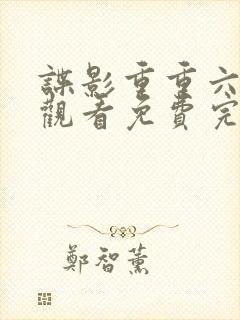 諜影重重六
觀看免費完
鄭智薰